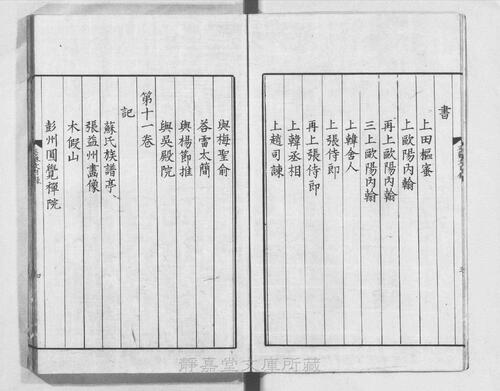 書
上田樞蜜
上歐陽內翰
再上歐陽內翰
三上歐陽內翰
上韓舍人
上張侍郎
再上張侍郎
上韓丞相
上趙司諫
與梅聖俞
荅雷太簡
與楊節推
與吳殿院
第十一卷
記
蘇氏族譜亭
張益州畫像
木假山
彭州圓覺禪院
靜嘉堂文庫所藏